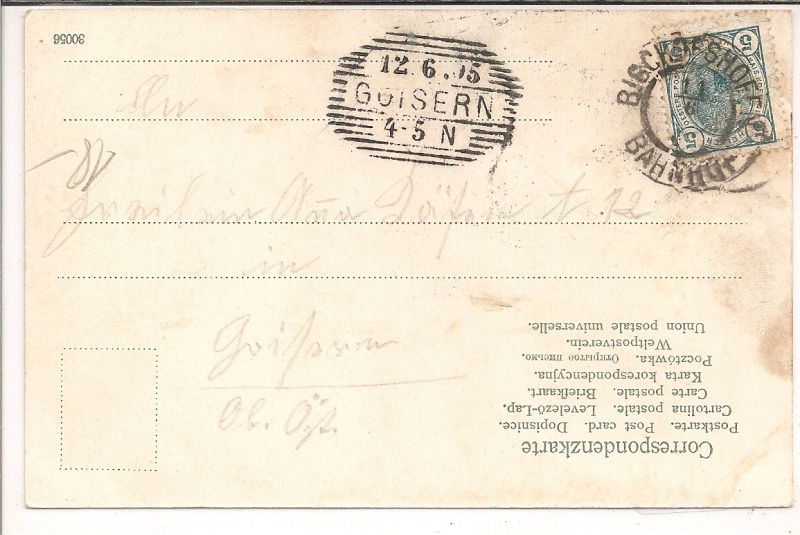 30056
12.6.05
GOISERN
4-5 N
BISCHOFSHOFEN
BAHNHOF
5 5
5 5
An
Fräulein
in
Goisern
Ob. Öst.
Correspondenzkarte
Postkarte. Post card. Dopisnice.
Cartolina postale. Levelező-Lap.
Carte postale. Briefkaart.
Karta korespondencyjna.
Pocztówka. Открытое письмо.
Weltpostverein.
Union postale universelle.